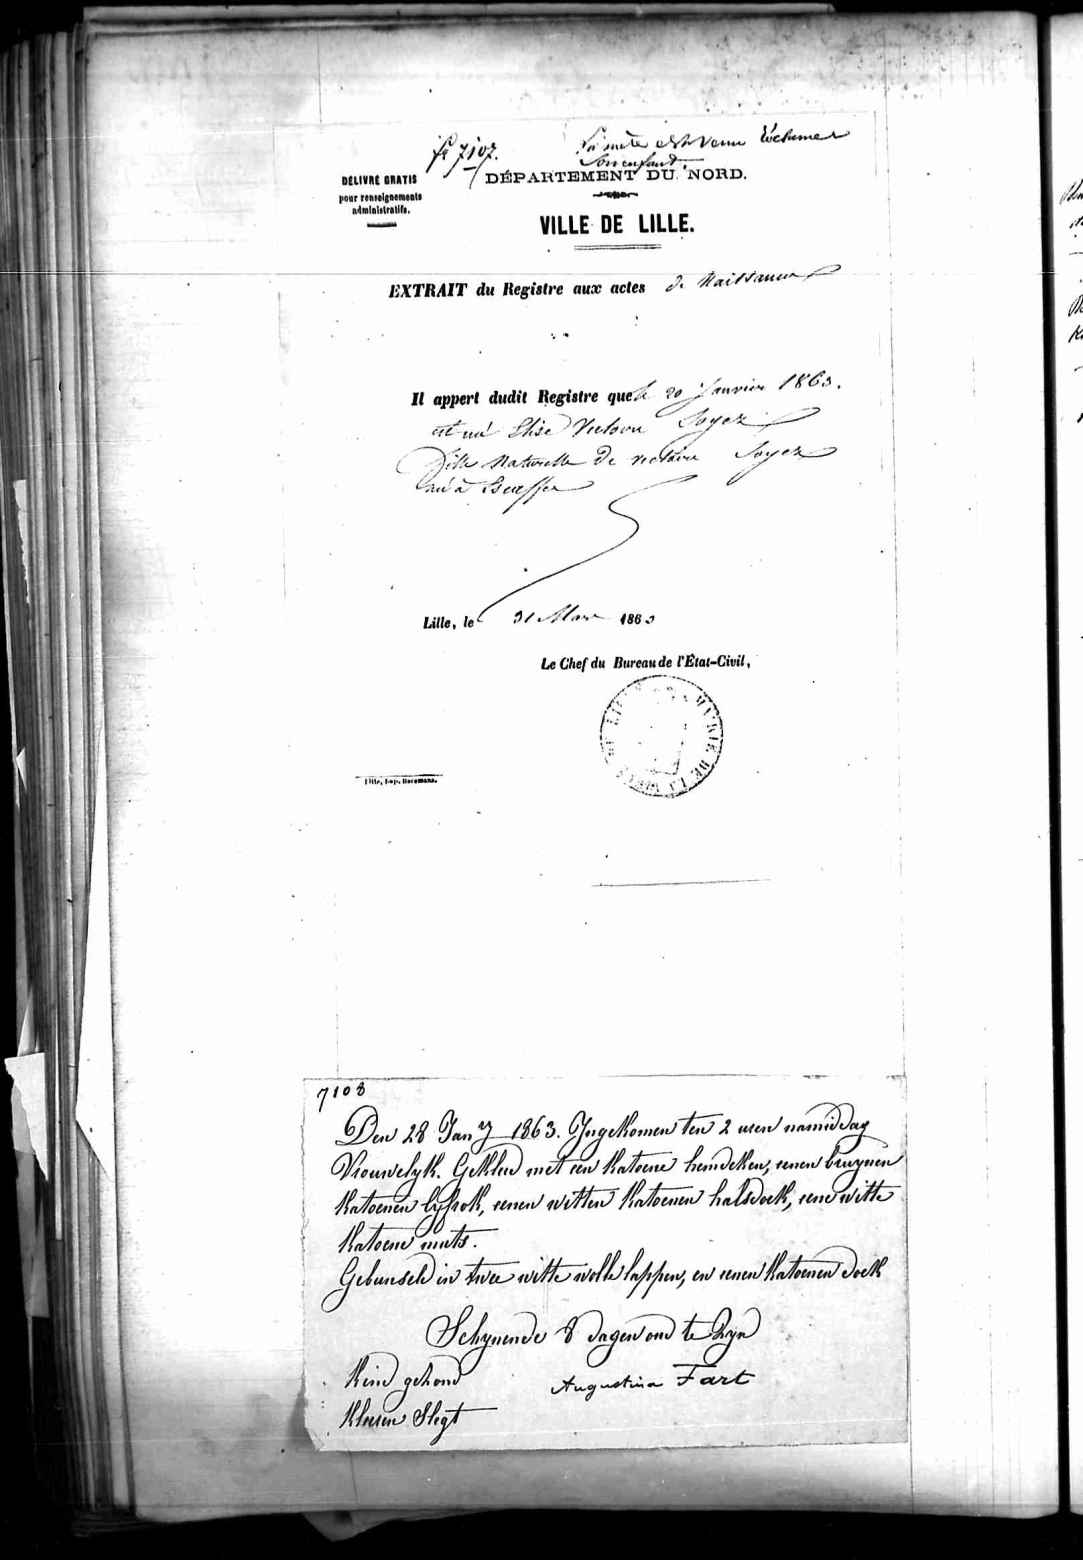 fo 7107.
Sa mère est venu réclamer
son enfant
DÉLIVRÉ GRATIS
pour renseignements
administratifs.
DÉPARTEMENT DU NORD.
VILLE DE LILLE.
EXTRAIT du Registre aux actes de Naissance
Il appert dudit Registre que le 20 Janvier 1863.
est né Elise Victoire Soyez
fille Naturelle de victoire Soyez
né à
Lille, le 31 Mars 1863
Le Chef du Bureau de l'État-Civil,
MAIRIE DE LA VILLE DE LILLE
Lille, Imp. Horemans.
7108
Den 28 Jany 1863. Ingekomen ten 2 uren namiddag
Vrouwelyk. Gekleed met een katoene hemdeken, eenen bruynen
katoenen lyfrok, eenen witten katoenen halsdoek, eene witte
katoene muts.
Gebunseld in twee witte wolle lappen, en eenen katoenen doek
Schynende 8 dagen oud te Zyn
Kind gehond
Augustina Fart
Kleeren Slegt